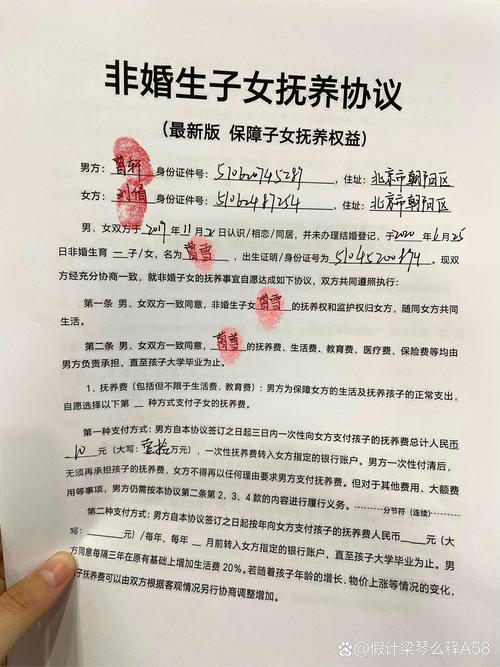 非婚生子女抚养协议
（最新版 保障子女抚养权益）
男方：曾轩 身份证件号：510620745287，住址：北京市朝阳区
女方：刘俏 身份证件号：51062487254，住址：北京市朝阳区
男、女双方于2017年11月2日认识/相恋/同居，并未办理结婚登记，于2020年6月25
日非婚生育一子/女，名为曾雪，出生证明/身份证号为51045200874。现双
方经充分协商一致，就非婚子女的抚养事宜自愿达成如下协议，双方共同遵照执行：
第一条 男、女双方一致同意，非婚生子女曾雪的抚养权和监护权归女方，随同女方共同
生活。
第二条 男、女双方一致同意，曾雪的抚养费、生活费、教育费、医疗费、保险费等均由
男方负责承担，直至孩子大学毕业为止。
1、抚养费（包括但不限于生活费、教育费）：男方为保障女方的生活及抚养孩子的正常支出，
自愿选择以下第__种方式支付子女的抚养费。
第一种支付方式：男方自本协议签订之日起三日内一次性向女方支付孩子的抚养费总计人民币
10元（大写：壹拾万元），一次性抚养费转入女方指定的银行账户。男方一次性付清后，
无须再承担孩子的抚养费，女方不得再以任何理由要求男方支付抚养费。但对于其他费用、大额费
用等事项，男方仍需按本协议第二条第2、3、4款的内容进行履行义务。
分节符（连续）
第二种支付方式：男方自本协议签订之日起按年向女方支付孩子的抚养费人民币____元（大
写：______元）/每年，每年__月前转入女方指定的银行账户，直至孩子大学毕业为止。男
方同意每隔三年在原有基础上增加生活费20%。若随着孩子年龄的增长、物价上涨等情况的变化，
子抚养费可以由双方根据客观情况另行协商调整增加。
假计梁琴么释A58